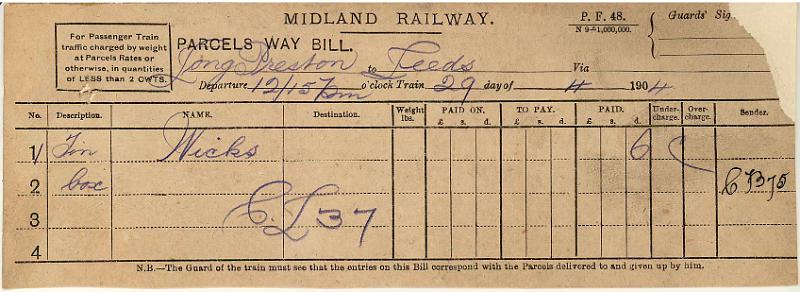 MIDLAND RAILWAY.
P. F. 48.
N 9—1,000,000.
Guards' Sig
For Passenger Train
traffic charged by weight
at Parcels Rates or
otherwise, in quantities
of LESS than 2 CWTS.
PARCELS WAY BILL.
Long Preston to Leeds Via
Departure 12/15 pm o'clock Train 29 day of 4 1904
No. Description. NAME. Destination. Weight lbs. PAID ON. £ s. d. TO PAY. £ s. d. PAID. £ s. d. Under-charge. Over-charge. Sender.
1 Wicks 6
2 box
3 C. L 37
4
N.B.—The Guard of the train must see that the entries on this Bill correspond with the Parcels delivered to and given up by him.